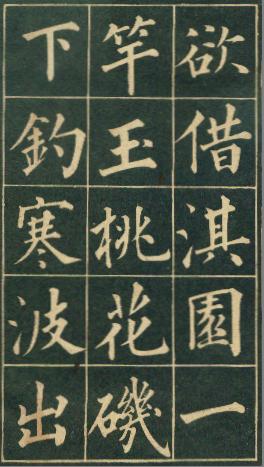 欲借淇園一
竿玉桃花磯
下釣寒波出